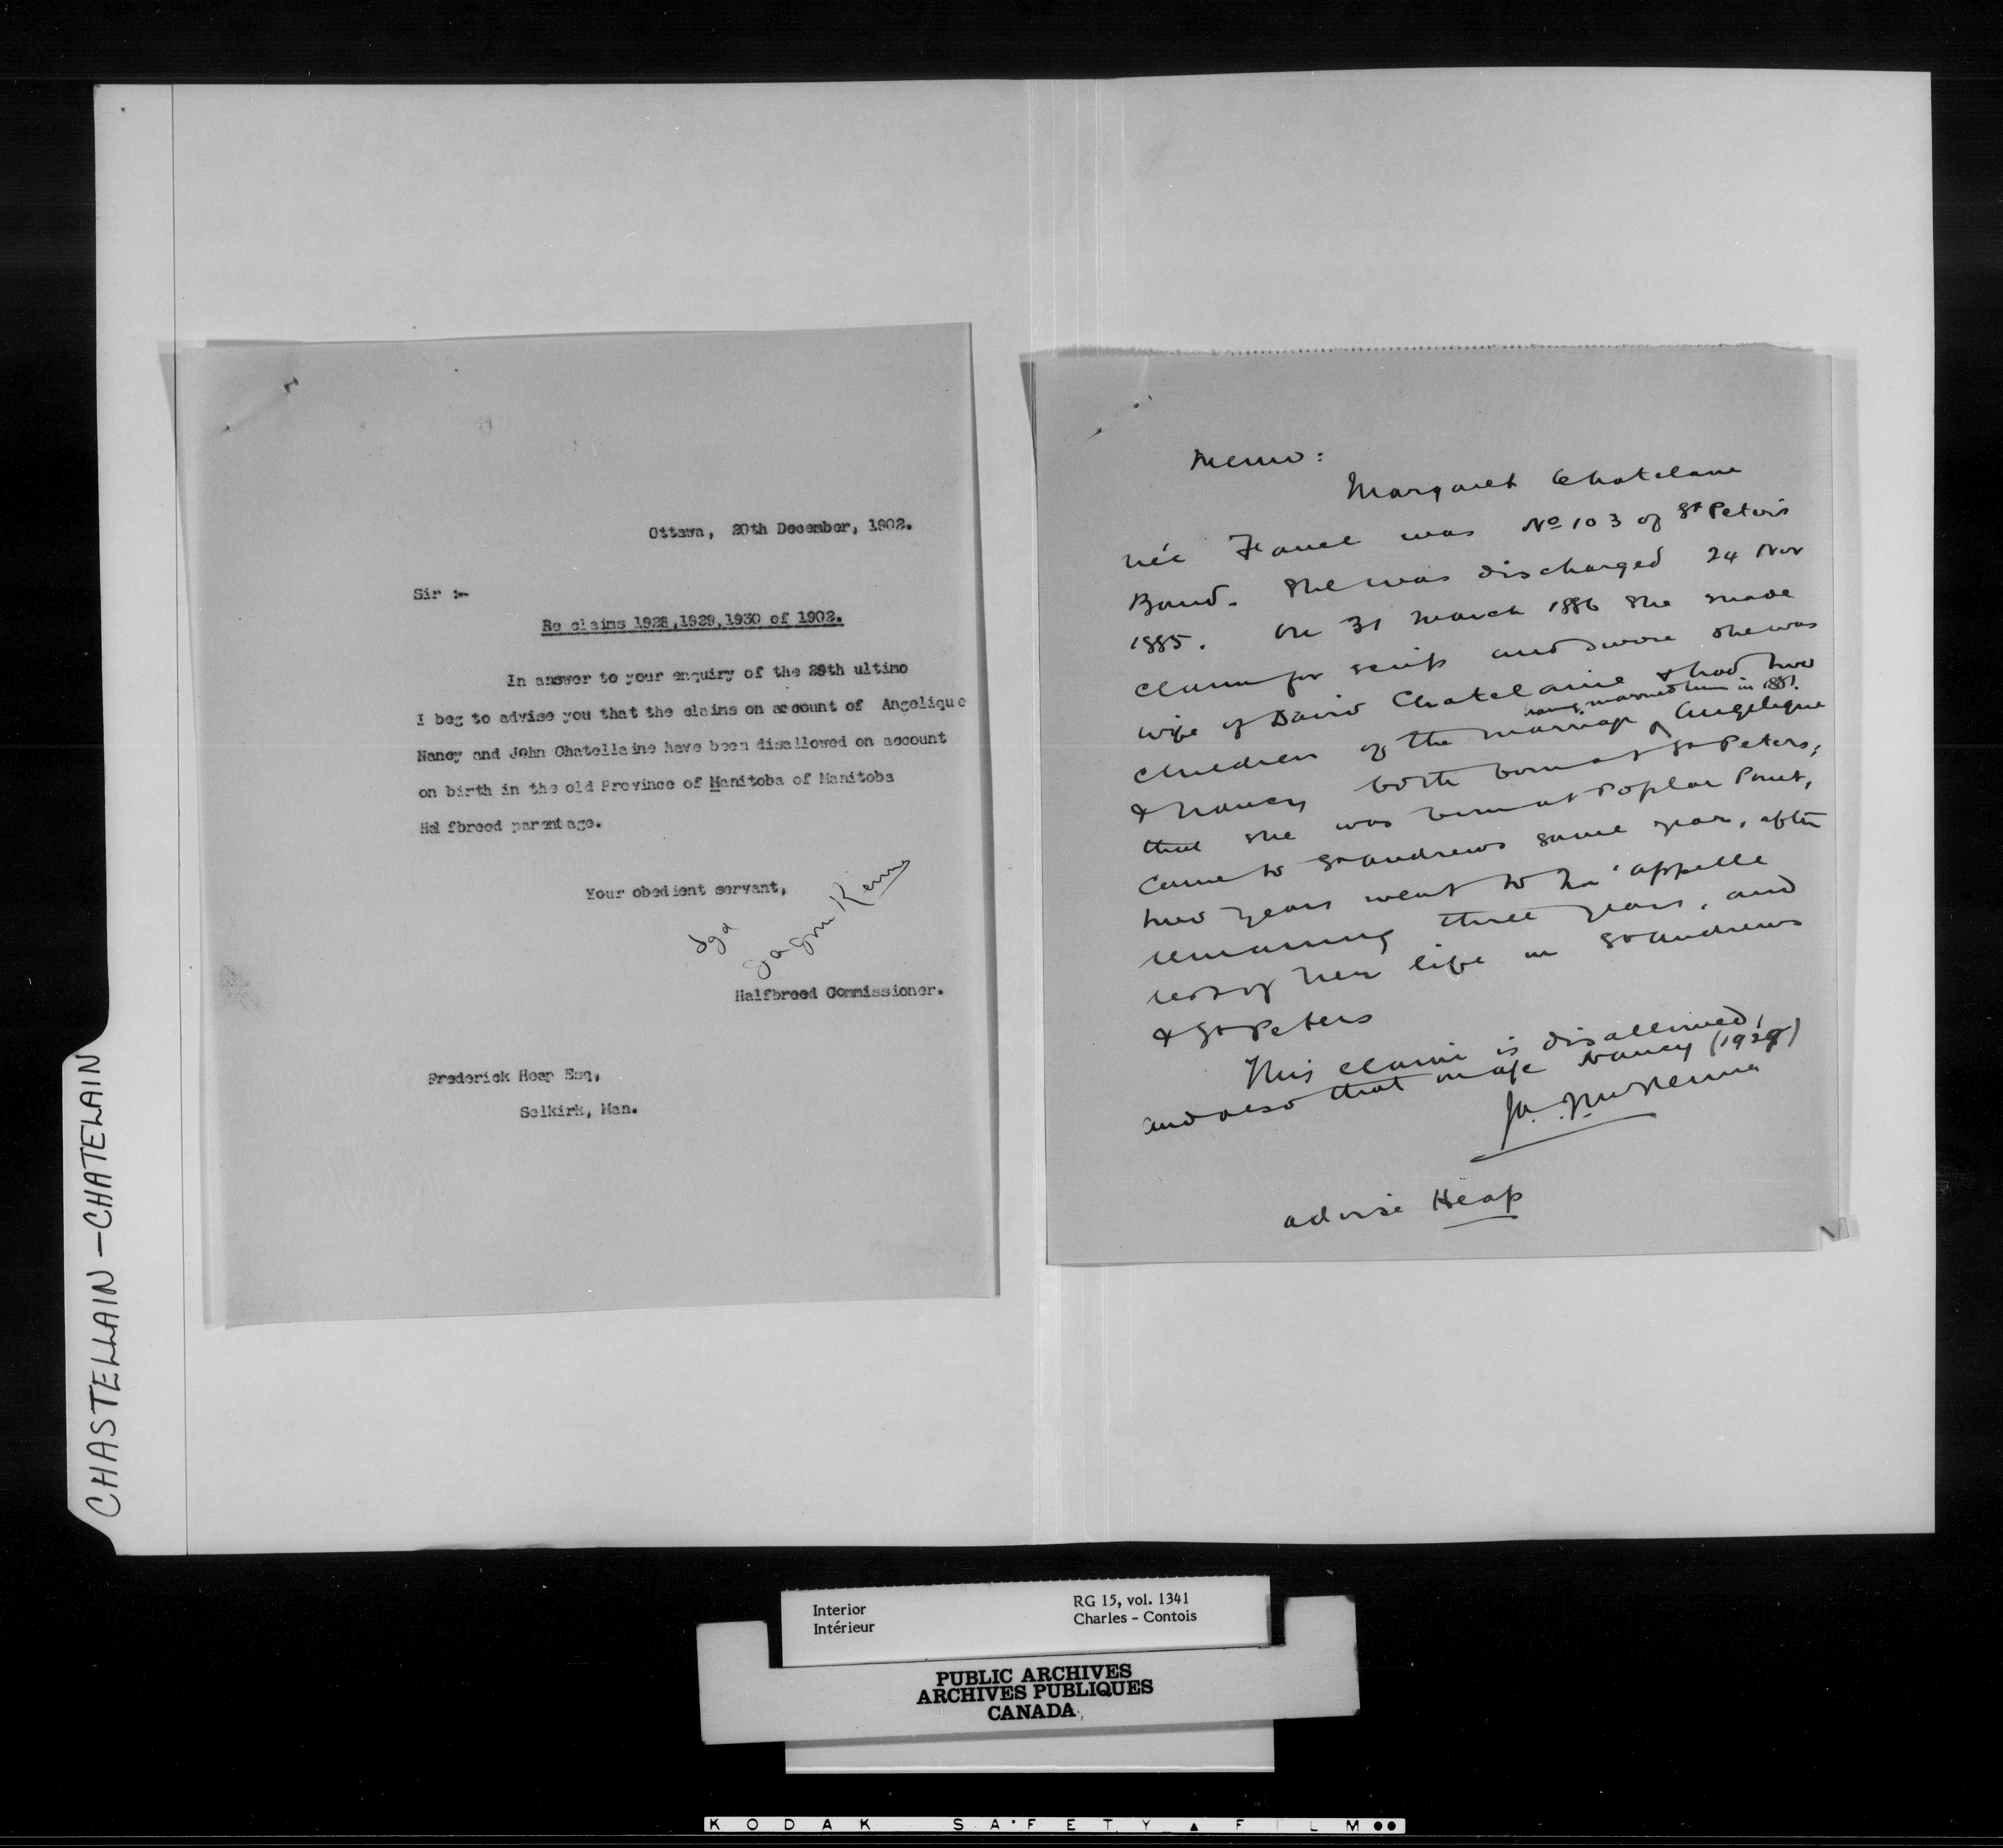 CHASTELLAIN - CHATELAIN
Ottawa, 20th December, 1902.
Sir :-
Re claims 1928,1929,1930 of 1902.
In answer to your enquiry of the 29th ultimo
I beg to advise you that the claims on account of Angelique
Nancy and John Chatellaine have been disallowed on account
on birth in the old Province of Manitoba of Manitoba
Halfbreed parentage.
Your obedient servant,
Sgd
Halfbreed Commissioner.
Frederick Heap Esq,
Selkirk, Man.
Memo:
Margaret Chatelane
née was No 103 of St Peter's
Band. She was discharged 24 Nov
1885. On 31 March 1886 she made
claim for scrip and swore she was
wife of David Chatelaine & had two
having married him in 1881.
children of the marriage Angelique
& Nancy both born at St Peters;
that she was born at Poplar Point,
came to St Andrews same year, after
two years went to Qu'appelle
remaining three years, and
rest of her life in St Andrews
& St Peters
This claim is disallowed,
and also that of Nancy (1929)
J.A. McKenna
advise Heap
Interior
Intérieur
RG 15, vol. 1341
Charles - Contois
PUBLIC ARCHIVES
ARCHIVES PUBLIQUES
CANADA
KODAK SAFETY FILM